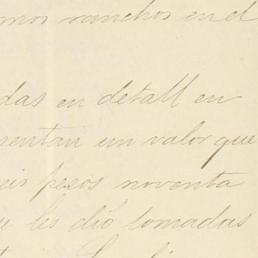 mos ranchos en el
das en detall en
sentan un valor que
eis pesos noventa
les dió tomadas